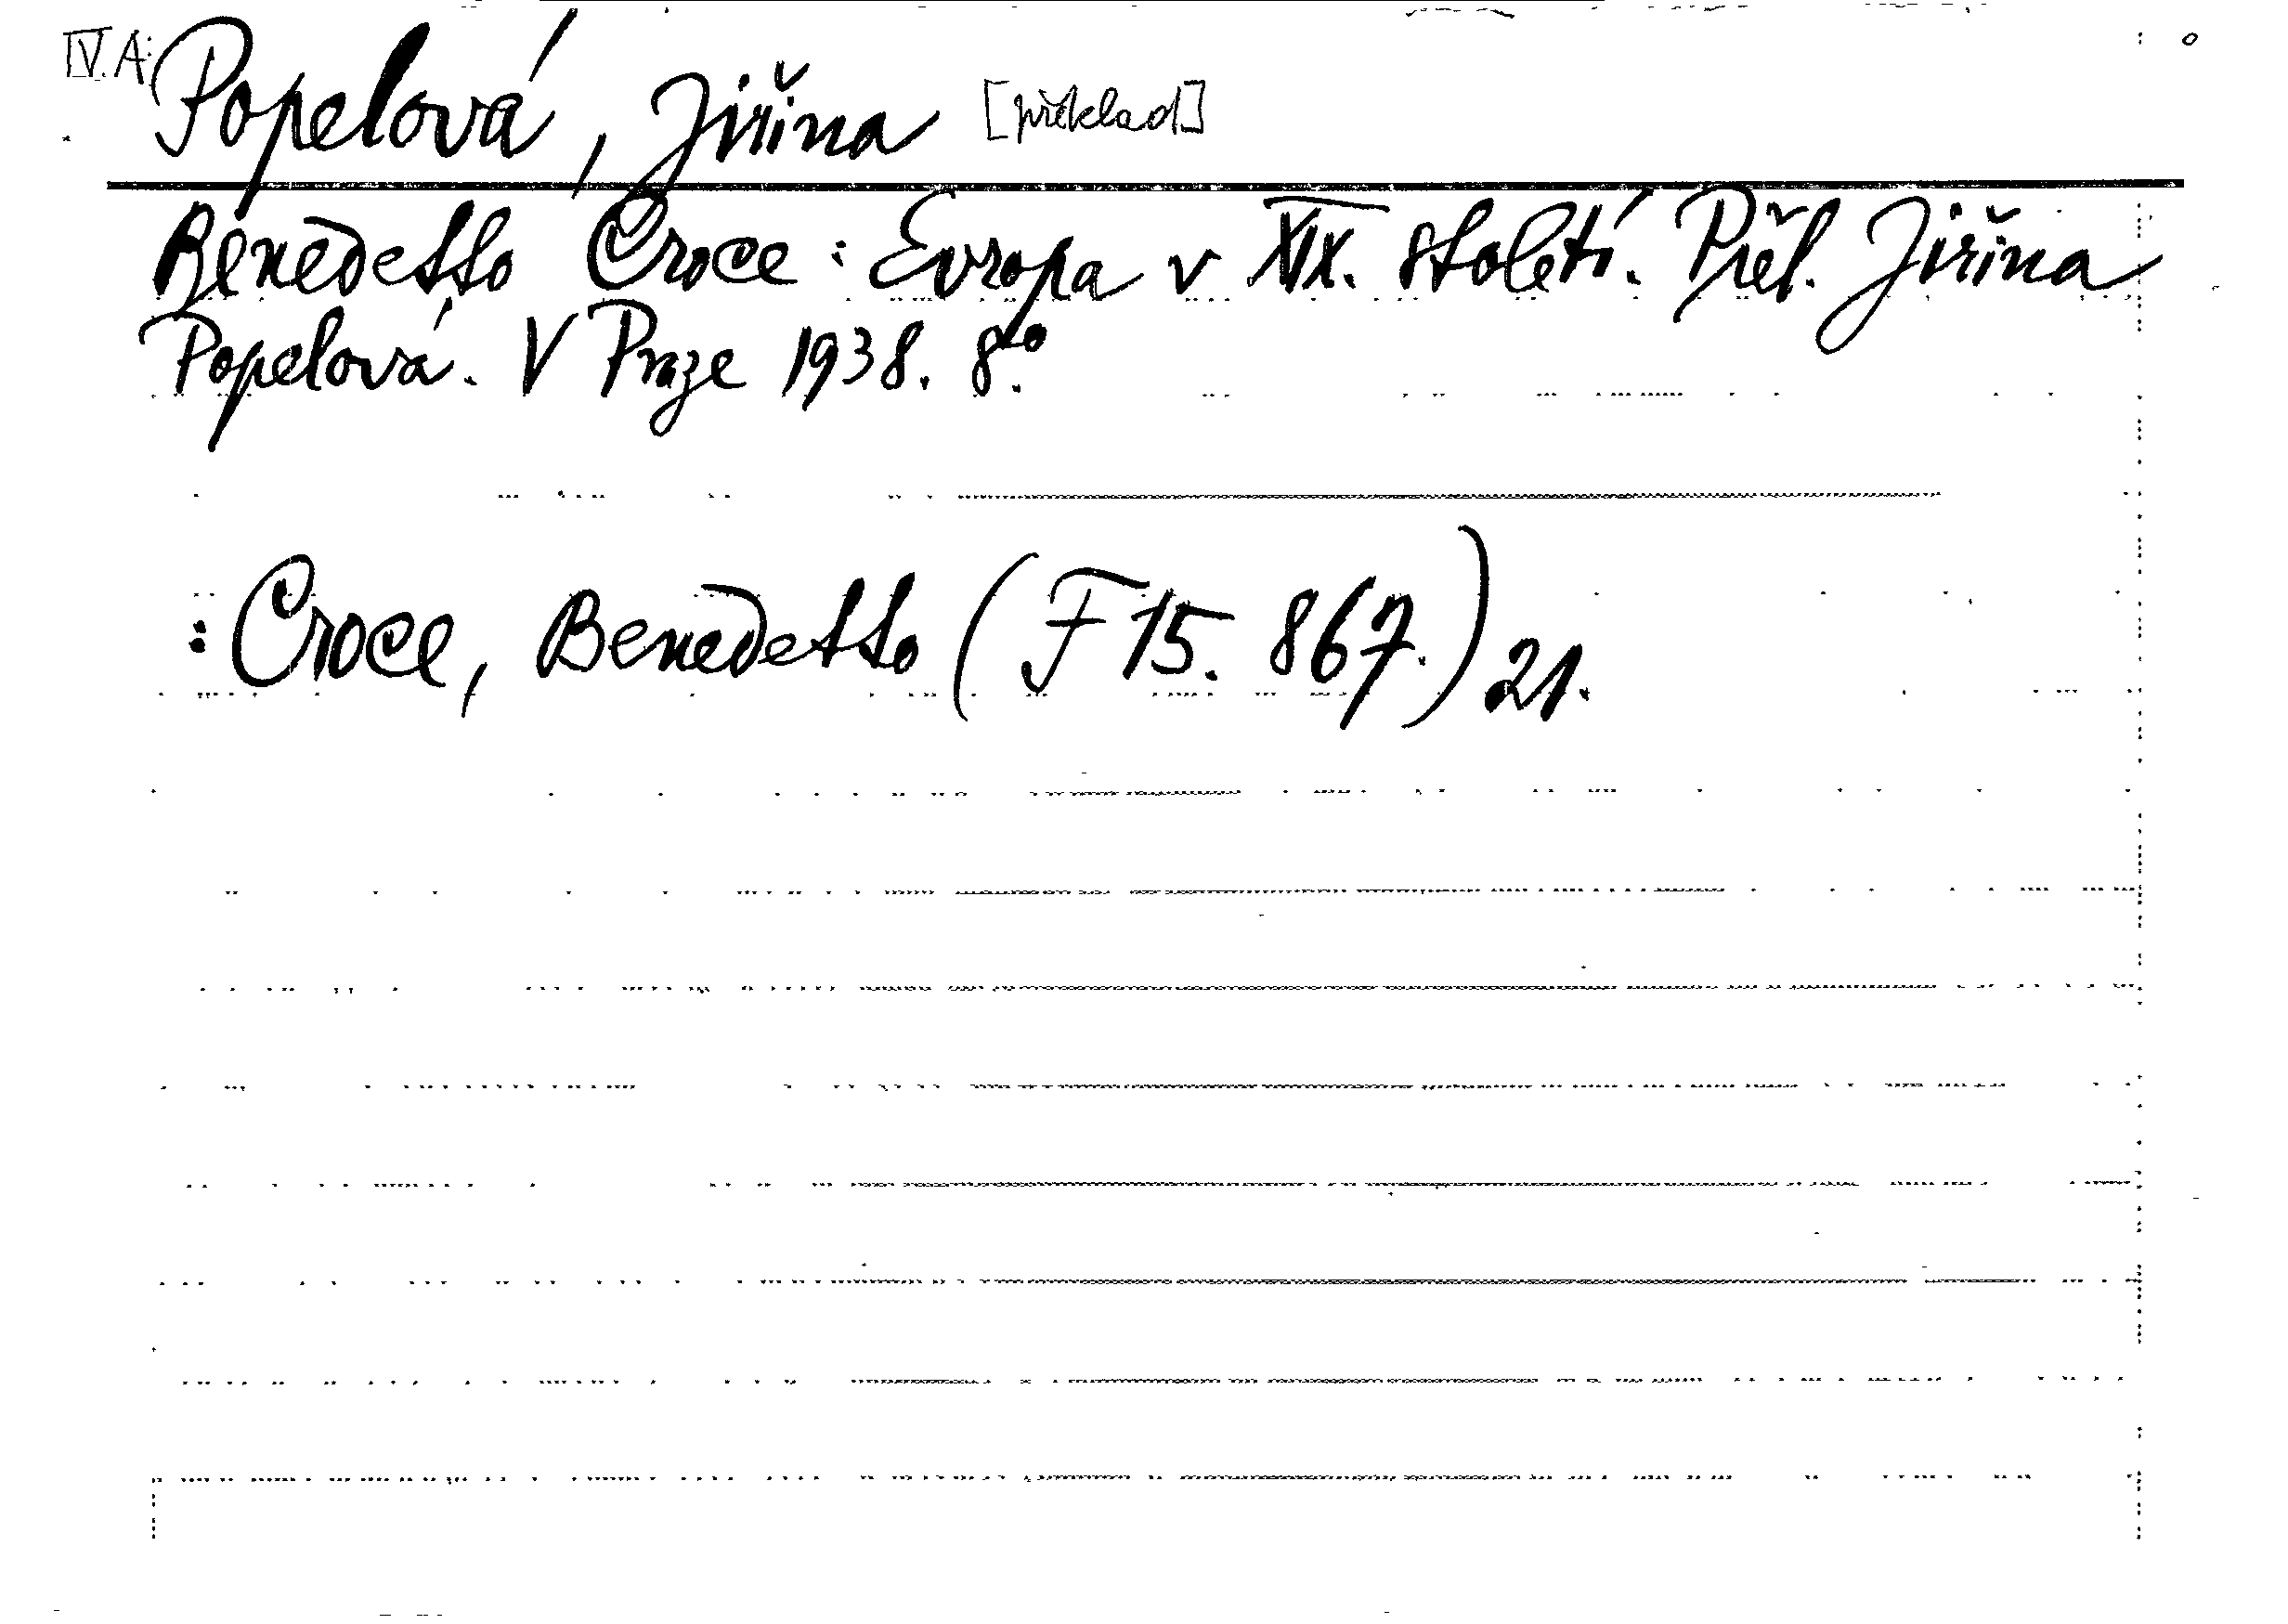 IV.A: Popelová, Jiřina [překlad]
Benedetto Croce: Evropa v XIX. století. Přel. Jiřina
Popelová. V Praze 1938. 8to.
: Croce, Benedetto (F 15. 867.) 21.